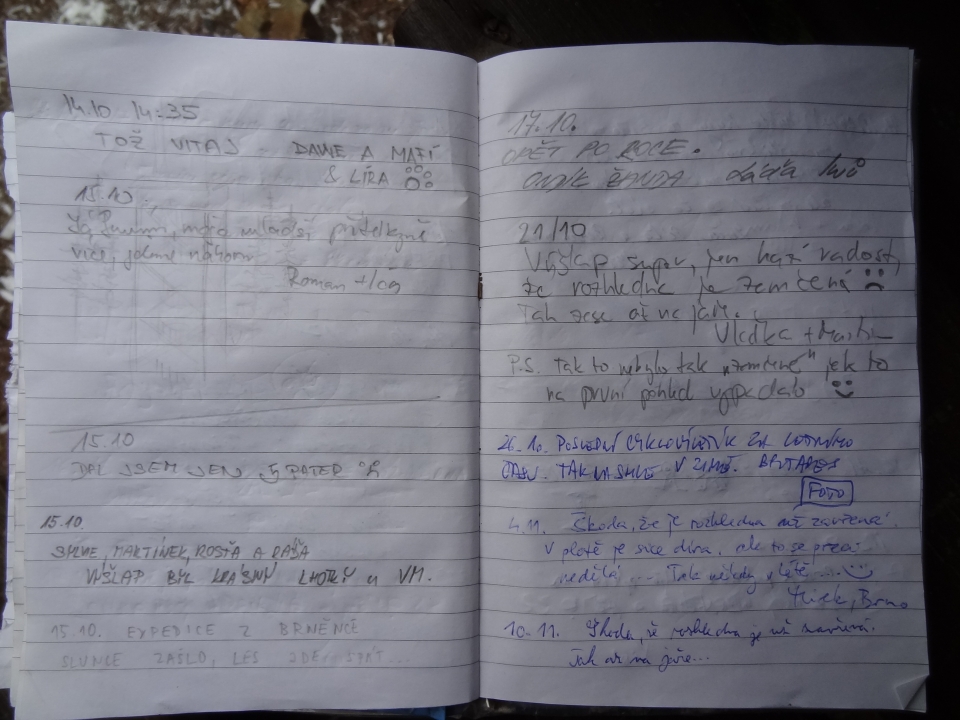 14.10 14:35
TOŽ VITAJ - DAVE A MATÍ
& LÍRA
15.10.
Já mladší přítelkyně
více, jdeme náhoru
Roman
15.10
DAL JSEM JEN
15.10.
MARTÍNEK, ROSŤA A DÁŠA
VÝŠLAP BYL KRÁSNÝ LHOTKY u VM.
15.10. EXPEDICE Z BRNĚNCE
SLUNCE ZAŠLO, LES ZDE SPÁT...
17.10.
OPĚT PO ROCE.
21/10
Výšlap super, jen kazí radost,
že rozhledna je zamčená ☹
Tak zase až na jaře.
Vlaďka + Martin
P.S. Tak to nebylo tak "zamčené" jak to
na první pohled vypadalo ☺
26.10. POSLEDNÍ CYKLOVÝLET ZA LETNÍHO
ČASU. TAK NASHLE V ZIMĚ.
FOTO
4.11. Škoda, že je rozhledna už zavřená.
V plotě je sice díra, ale to se přece
nedělá.... Tak někdy v létě.... ☺
Brno
10.11. Škoda, že rozhledna je už zavřená.
Tak až na jaře...